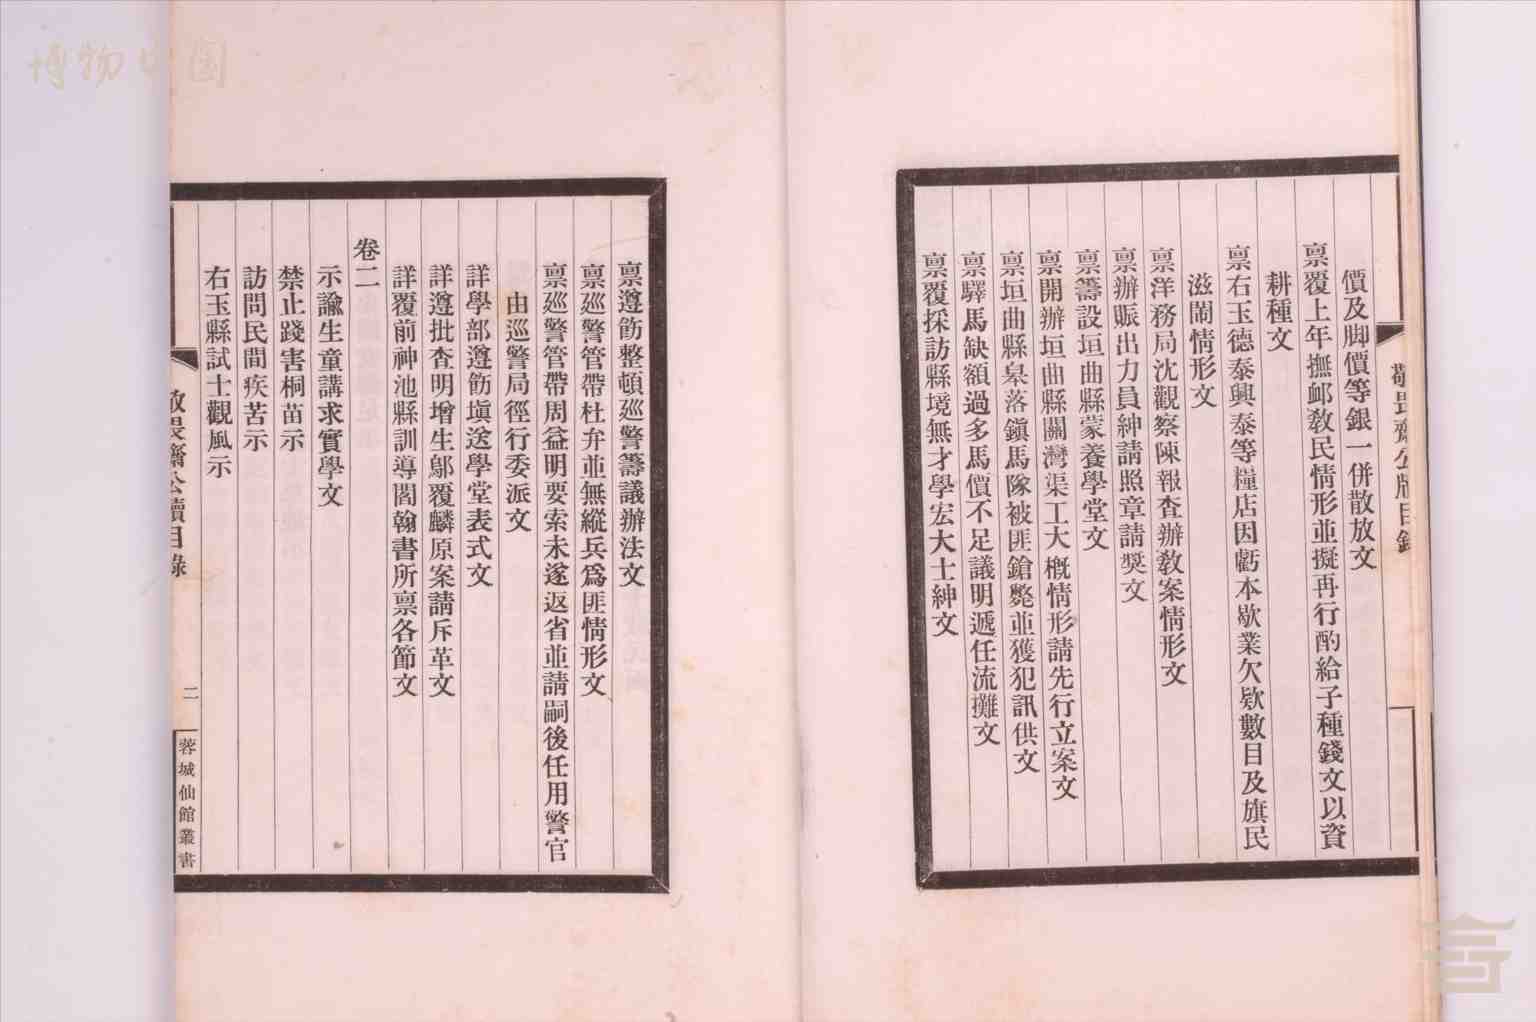 價及脚價等銀一併散放文
禀覆上年撫邮教民情形並擬再行酌給子種錢文以資
耕種文
禀右玉德泰興泰等糧店因虧本歇業欠欵數目及旗民
滋閙情形文
禀洋務局沈觀察陳報查辦教案情形文
禀辦賑出力員紳請照章請獎文
禀籌設垣曲縣蒙養學堂文
禀開辦垣曲縣關灣渠工大概情形請先行立案文
禀垣曲縣皋落鎮馬隊被匪鎗斃並獲犯訊供文
禀驛馬缺額過多馬價不足議明遞任流攤文
禀覆採訪縣境無才學宏大士紳文
敬畏齋公牘目錄
禀遵飭整頓廵警籌議辦法文
禀廵警管帶杜弁並無縱兵爲匪情形文
禀廵警管帶周益明要索未遂返省並請嗣後任用警官
由巡警局徑行委派文
詳學部遵飭塡送學堂表式文
詳遵批查明增生鄔覆麟原案請斥革文
詳覆前神池縣訓導閻翰書所禀各節文
卷二
示諭生童講求實學文
禁止踐害桐苗示
訪問民間疾苦示
右玉縣試士觀風示
敬畏齋公牘目錄
二
蓉城仙館叢書
博物中国